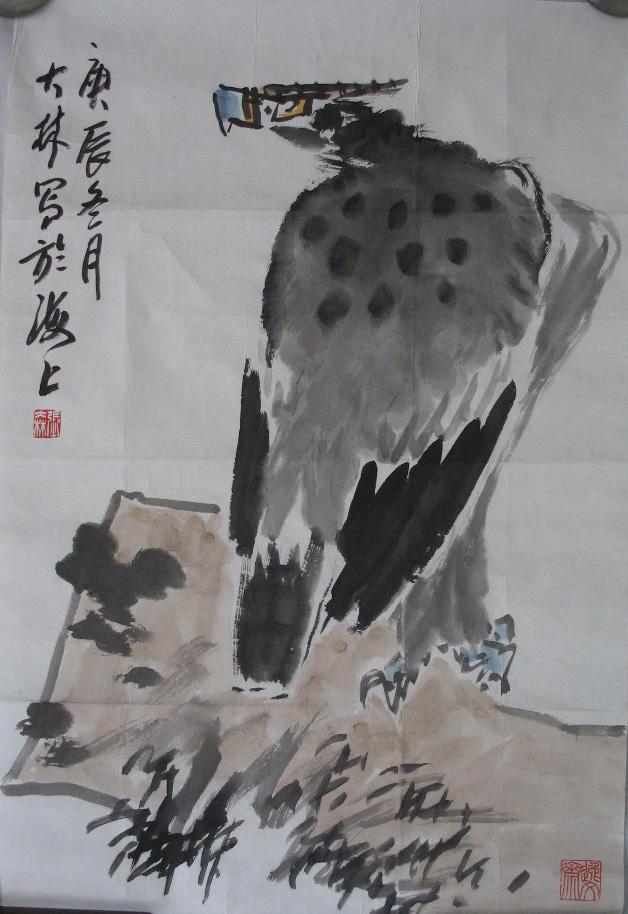 庚辰冬月
大林写於海上